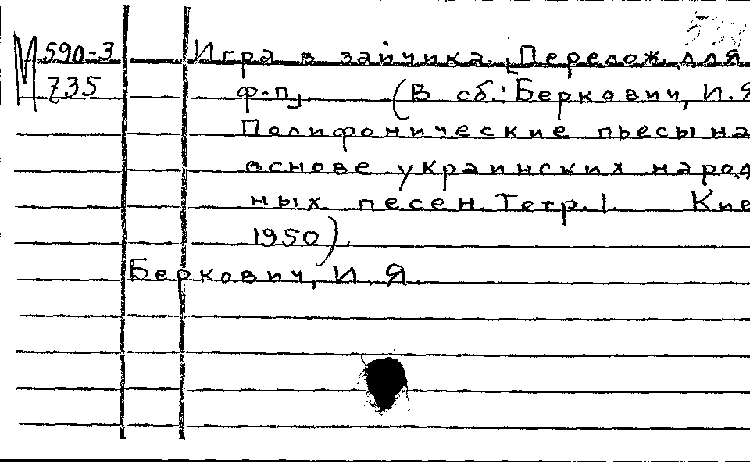 М 590-3 Игра в зайчика. [Перелож. для
735 ф-п] (В сб.: Беркович, И.Я
Полифонические пьесы на
основе украинских народ
ных песен. Тетр. 1. Кие
1950).
Беркович, И. Я.